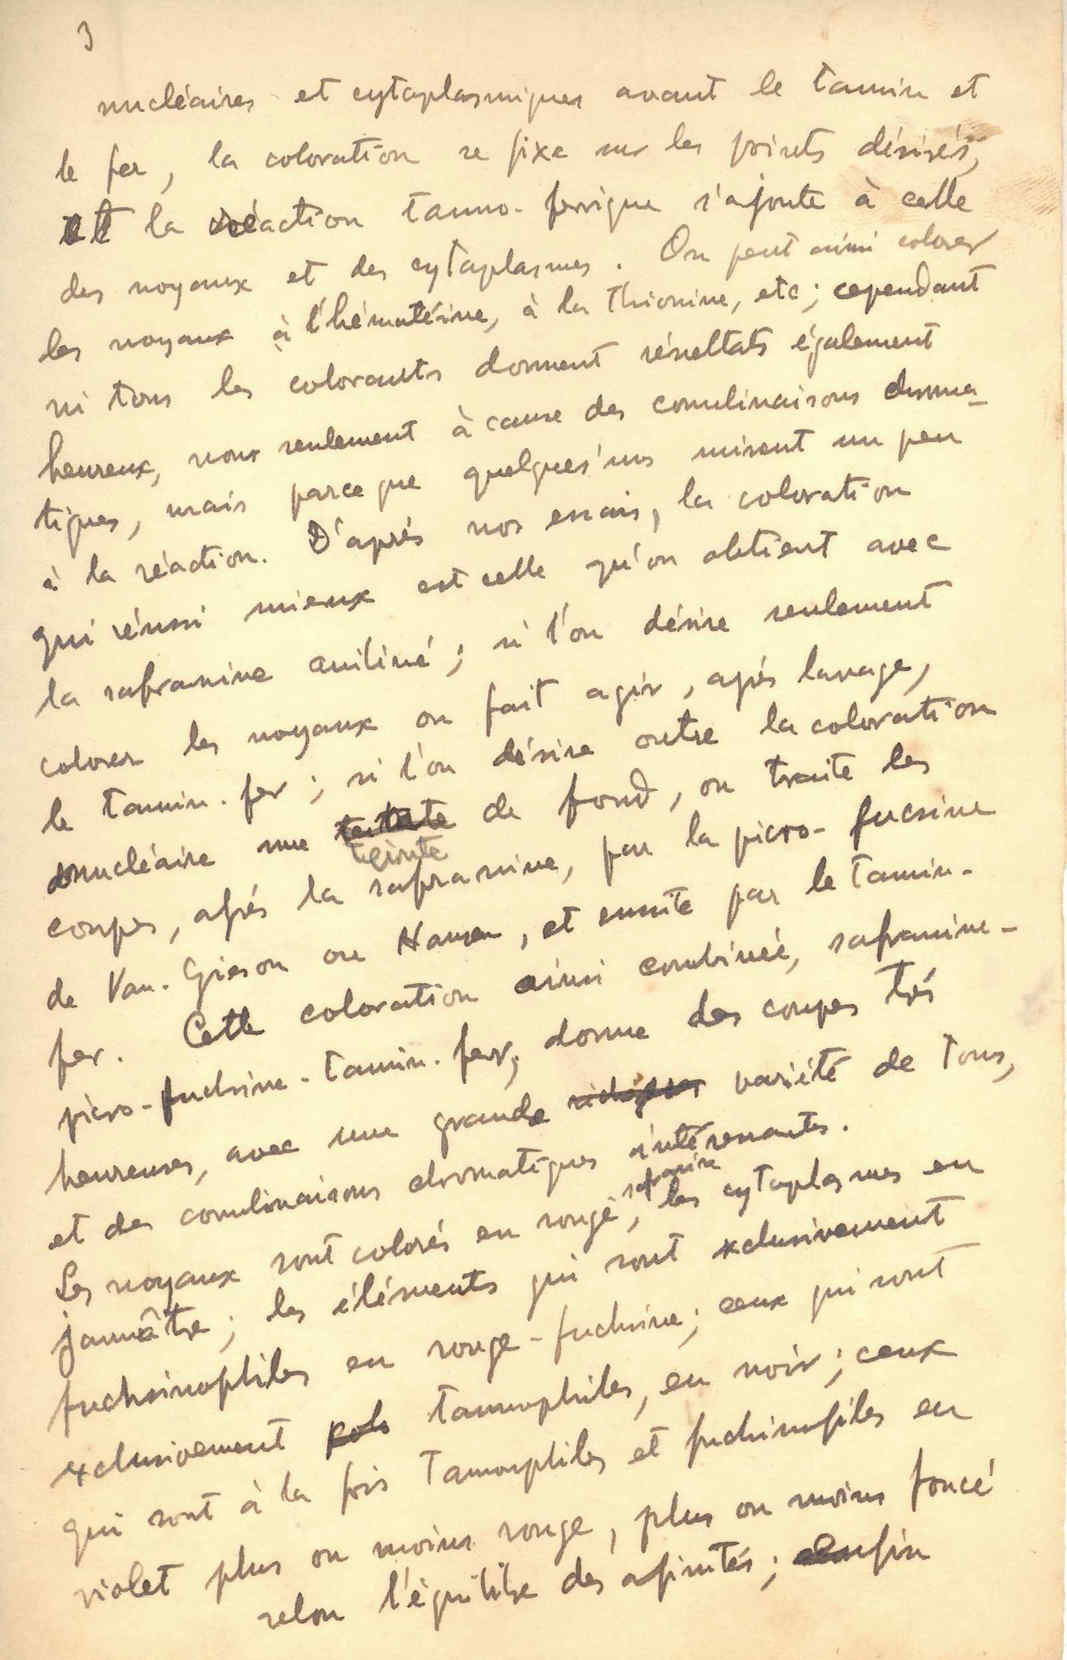 3
nucléaires et cytaplasmiques avant le tannin et
le fer, la coloration se fixe sur les points désirés,
et la réaction tanno-ferrique s'ajoute à celle
des noyaux et des cytaplasmes. On peut aussi colorer
les noyaux à l'hématéine, à la thionine, etc; cependant
ni tous les colorants donnent résultats également
heureux, non seulement à cause des combinaisons chroma-
tiques, mais parce que quelques'uns nuisent un peu
à la réaction. D'aprés nos essais, la coloration
qui réussi mieux est celle qu'on obtient avec
la safranine aniliné; si l'on désire seulement
colorer les noyaux on fait agir, aprés lavage,
le tannin-fer; si l'on désire outre la coloration
nucléaire une teinte de fond, on traite les
coupes, aprés la safranine, par la picro-fucsine
de Van-Gieson ou Hansen, et ensuite par le tannin-
fer. Cette coloration ainsi combinée, safranine-
picro-fuchsine-tannin-fer, donne des coupes trés
heureuses, avec une grande variété de tons,
et des combinaisons chromatiques intéressantes.
Les noyaux sont colorés en rouge safranine, les cytaplasmes en
jaunâtre; les éléments qui sont exclusivement
fuchsinophiles en rouge-fuchsine; ceux qui sont
exclusivement tannophiles, en noir; ceux
qui sont à la fois tannophiles et fuchsinofiles en
violet plus ou moins rouge, plus ou moins foncé
selon l'équilibre des afinités; enfin